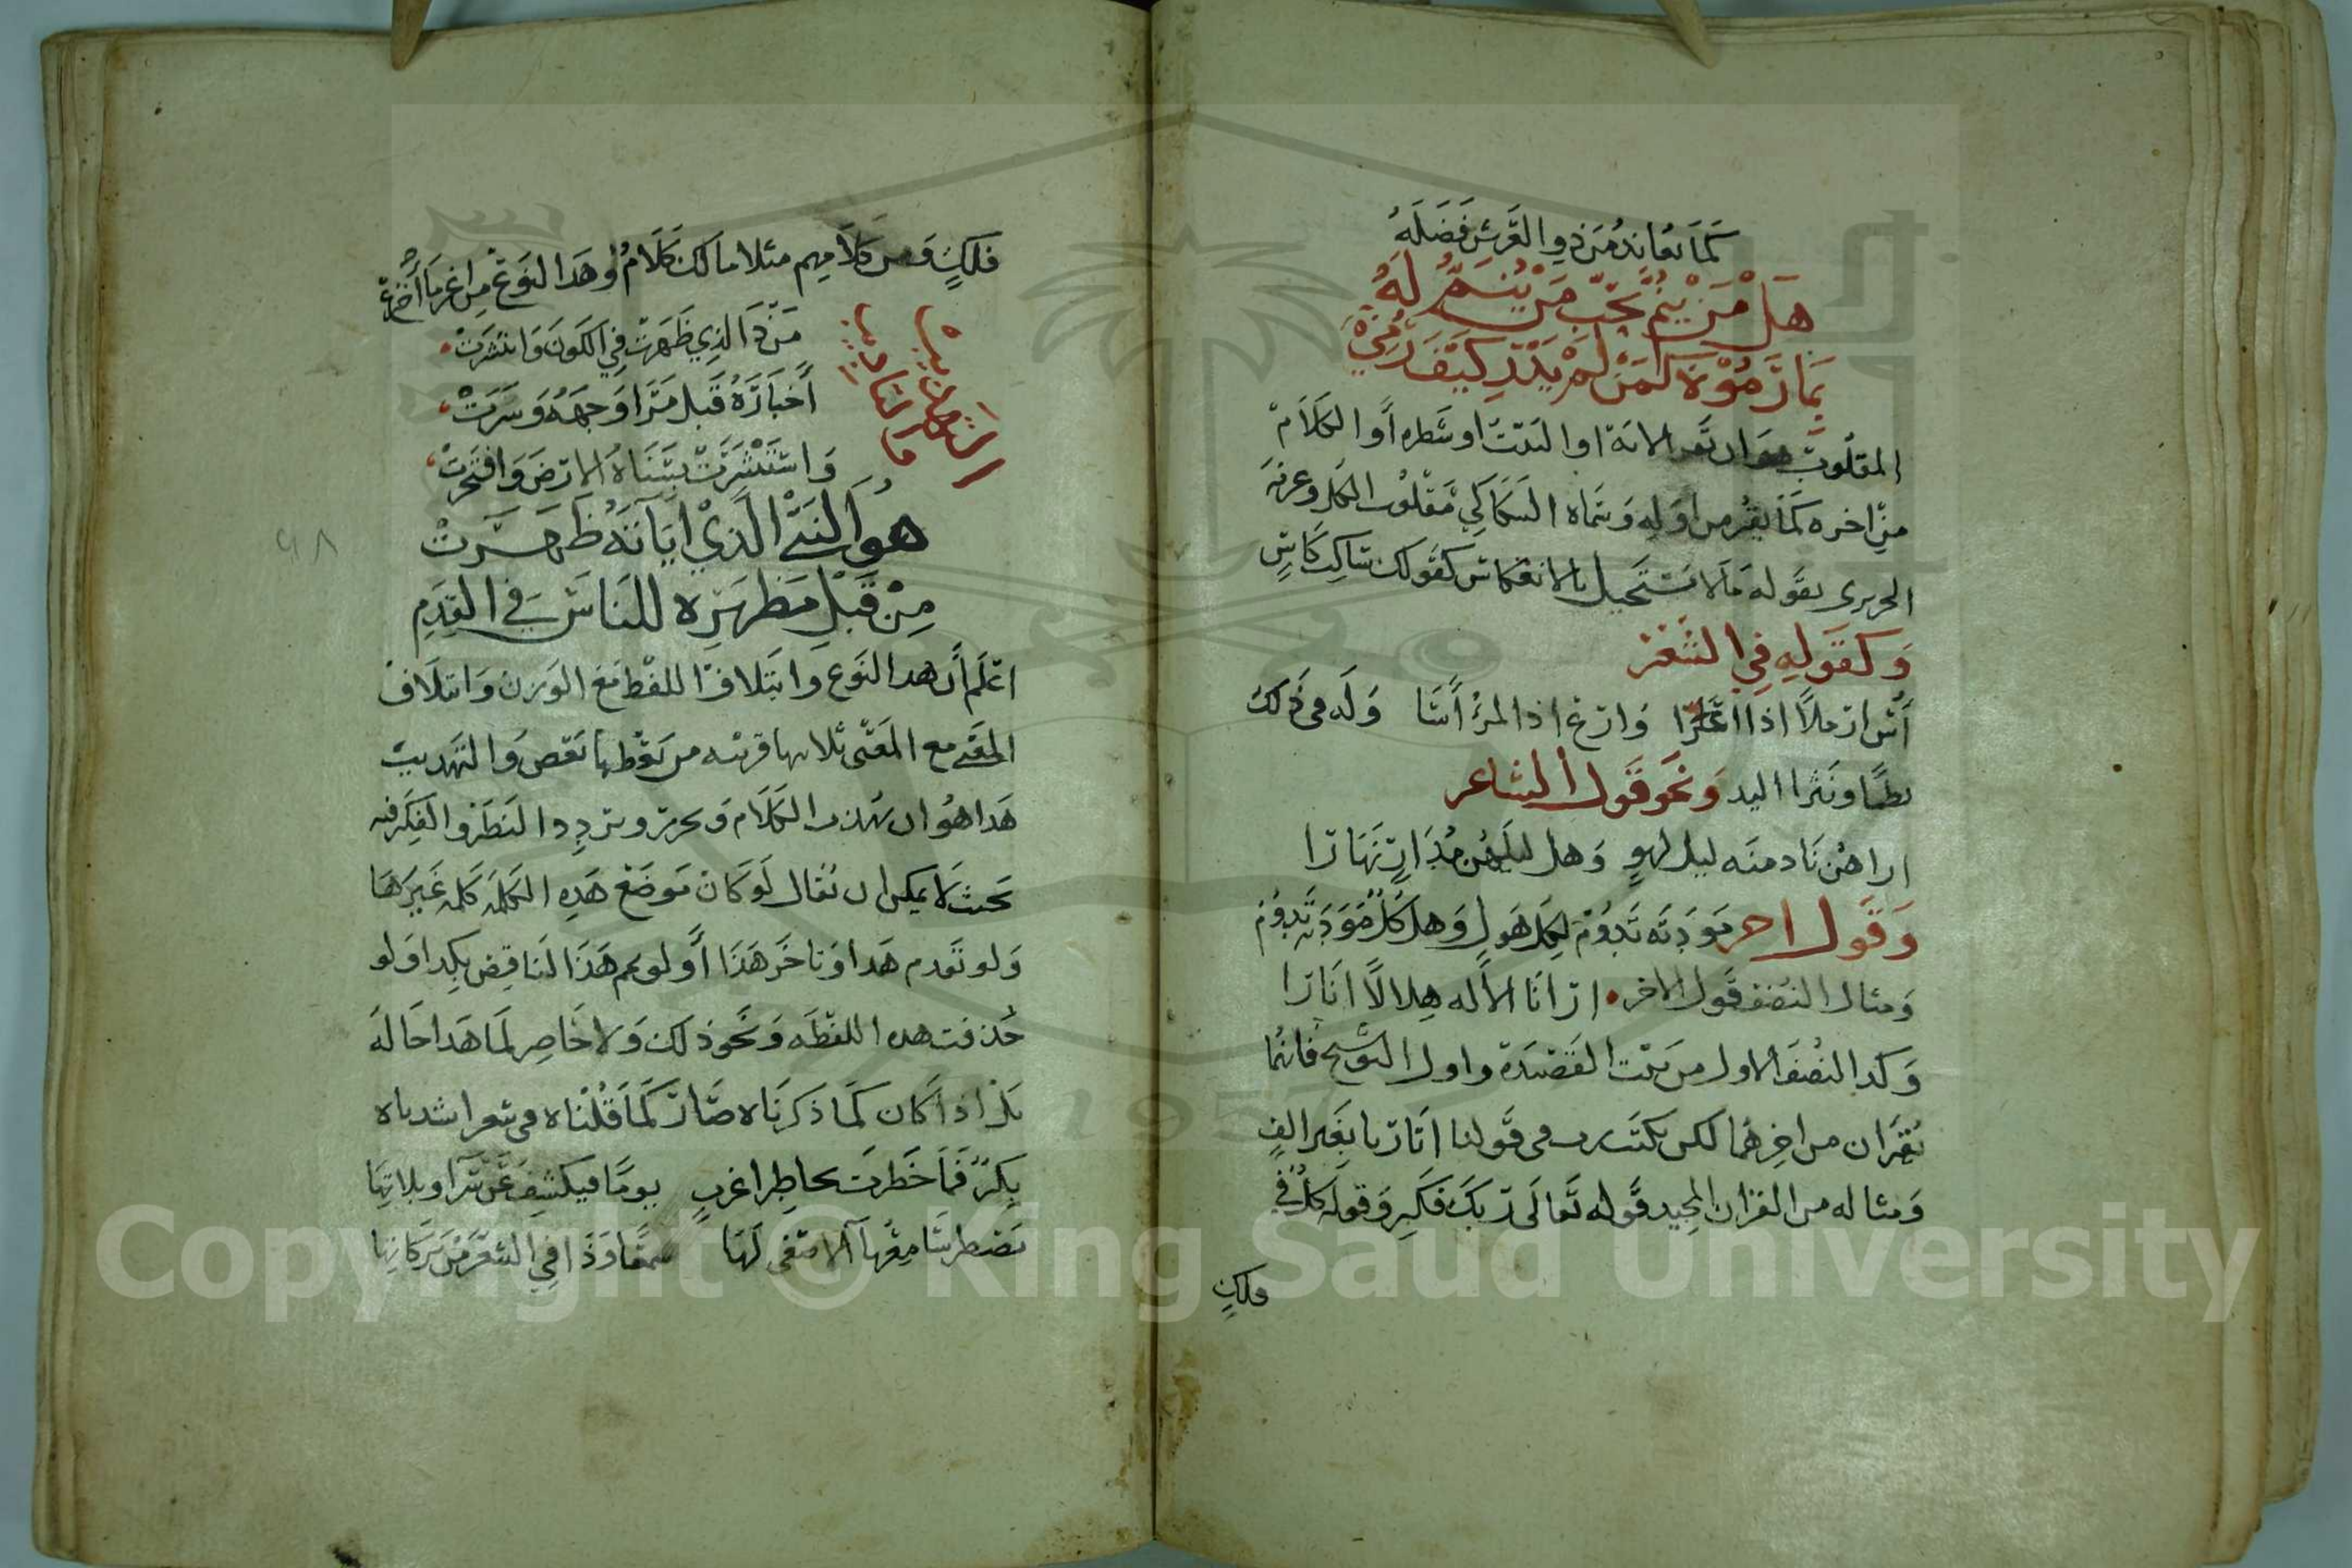 كَمَا يُعَانِدُ مَنْ ذِي العَرْشِ فَضَّلَهُ
هَلْ مَنْ يَنُمُّ بِحُبِّ مَنْ يَنُمُّ لَهُ
بِمَا رَمَوْهُ كَمَنْ لَمْ يَدْرِ كَيْفَ رُمِي
المقلوب هو ان تقرا الاية او البيت او شطره أو الكلام
من اخره كما يقرا من اوله وسماه السكاكي مقلوب الكل وعرفه
الحريري بقوله مالا يستحيل بالانعكاس كقولك ساكب كاس
وكقوله في الشعر
أس ارملا اذا عرا وارع اذا المرء أسا وله في ذلك
نظما ونثرا اليد ونحو قول الشاعر
اراهن نادمنه ليل لهو وهل ليلهن مدان نهارا
وقول اخر مودته تدوم لكل هول وهل كل مودته تدوم
ومثال النصف قول الاخر ارانا الأله هلالا انارا
وكذا النصف الاول من بيت القصيدة واول التوشيح فانهما
يقران من اخرهما لكن يكتب في قولنا انار يا بغير الف
ومثاله من القران المجيد قوله تعالى ربك فكبر وقوله كل في
فلك
فلك ومن كلامهم مثلا مالك كلام وهذا النوع من اغرب ما أخترع
التهذيب والتاديب
من ذا الذي ظهرت في الكون وانتشرت
أخباره قبل مرا وجهه وسرت
واستبشرت بسناه الارض وافتخرت
هُوَ النَّبِيُّ الَّذِيْ آيَاتُهُ ظَهَرَتْ
مِنْ قَبْلِ مَظْهَرِهِ لِلنَّاسِ فِي القِدَمِ
اعلم أن هذا النوع وايتلاف اللفظ مع الوزن وايتلاف
المعنى مع المعنى
هذا هو ان يهذب الكلام ويحرر ويردد النظر والفكر فيه
بحيث لا يمكن ان يقال لو كان موضع هذه الكلمه كلمه غيرها
ولو تقدم هذا وتاخر هذا أو لو تمم هذا الناقص بكذا ولو
حذفت هذه اللفظه ونحو ذلك ولا خاصر لما هذا حاله
بل اذا كان كما ذكرناه صار كما قلناه في شعر
بكر فما خطرت بخاطر اغرب يوما فيكشف عن
سامعها الا صغى لها سمعا وذا في الشعر من بركاتها
٩٨
Copyright © King Saud University
1957